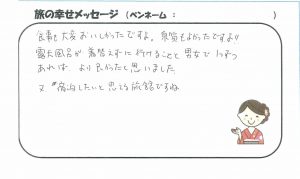 旅の幸せメッセージ (ペンネーム : )
食事も大変おいしかったですよ。泉質もよかったですよ!!
露天風呂が着替えずに行けることと男女で1つずつ
あれば より良かったと思いました
又 宿泊したいと思える旅館ですね